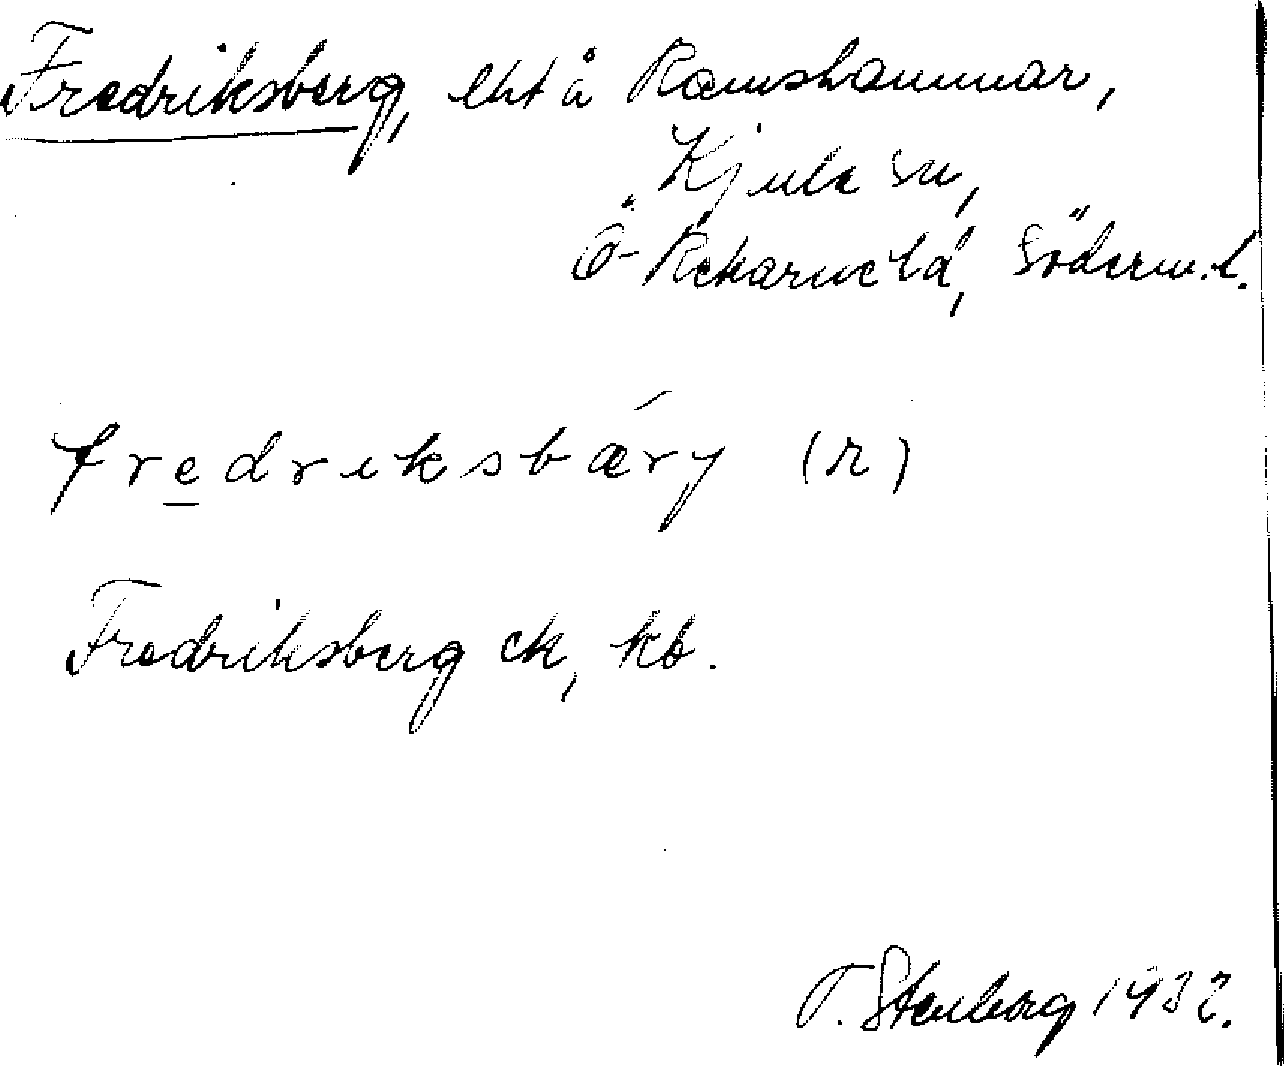 Fredriksberg, lht å Ramshammar,
Kjula sn,
Ö-Rekarne hd, Söderm.l.
fredriksbæ̀ry (r)
Fredriksberg ek, kb.
T. Stenberg 1932.